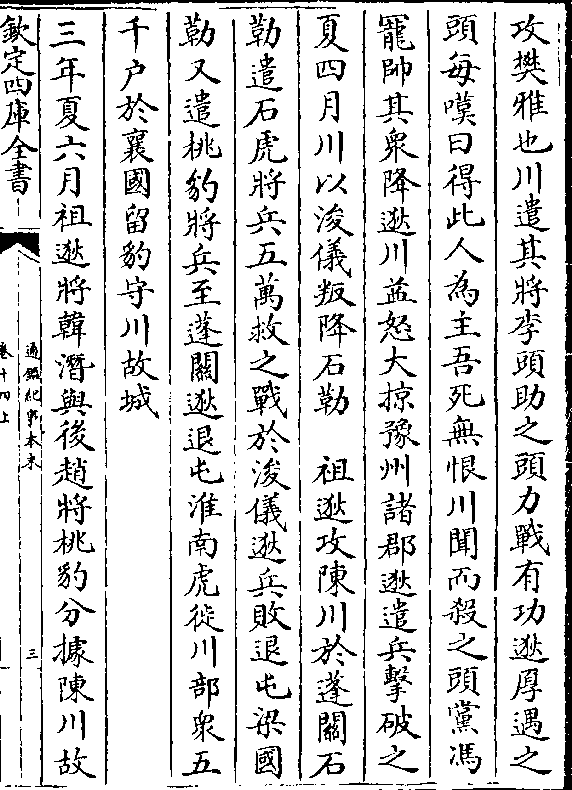 攻樊雅也川遣其將李頭助之頭力戰有功逖厚遇之
頭每嘆曰得此人為主吾死無恨川聞而殺之頭黨馮
寵帥其衆降逖川益怒大掠豫州諸郡逖遣兵擊破之
夏四月川以浚儀叛降石勒　祖逖攻陳川於蓬關石
勒遣石虎將兵五萬救之戰於浚儀逖兵敗退屯梁國
勒又遣桃豹將兵至蓬關逖退屯淮南虎徙川部衆五
千户於襄國留豹守川故城
三年夏六月祖逖將韓潛與後趙將桃豹分據陳川故
欽定四庫全書
通鑑紀事本末
卷十四上
三